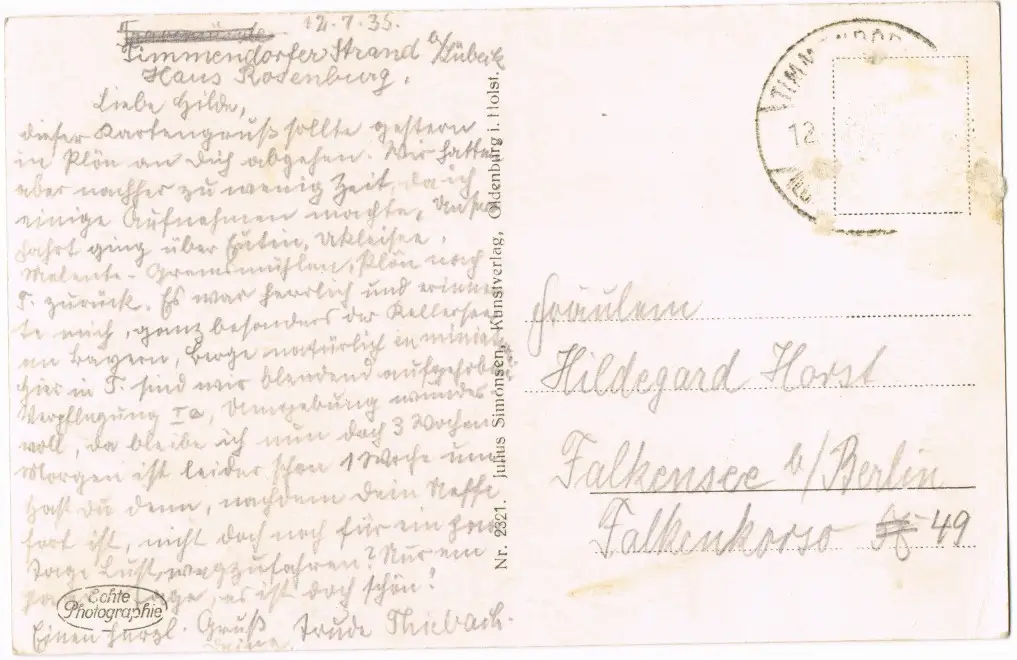 12.7.35.
Timmendorfer Strand b/Lübeck
Haus Rosenburg.
Liebe Hilde,
dieser Kartengruß sollte gestern
in Plön an Dich abgehen. Wir hatten
aber nachher zu wenig Zeit, da ich
einige Aufnehmen machte, Unsere
Fahrt ging über Eutin, Ukleisee,
Malente-Gremsmühlen, Plön nach
T. zurück. Es war herrlich und erinner
te mich, ganz besonders der Kellersee
an Bayern, Berge natürlich in
Hier in T. sind wir blendend aufgehoben
Verpflegung Ia, Umgebung wunder
voll, da bleibe ich nun doch 3 Wochen
Morgen ist leider schon 1 Woche um
Hast Du denn, nachdem Dein Neffe
fort ist, nicht doch noch für ein paar
Tage Lust, wegzufahren? Nur ein
paar Tage, es ist doch schön!
Einen herzl. Gruß
Deine Trude Thiebach.
Echte
Photographie
Nr. 2321. Julius Simonsen, Kunstverlag, Oldenburg i. Holst.
TIMM NDOR
12
Fräulein
Hildegard Horst
Falkensee b/Berlin
Falkenkorso 49